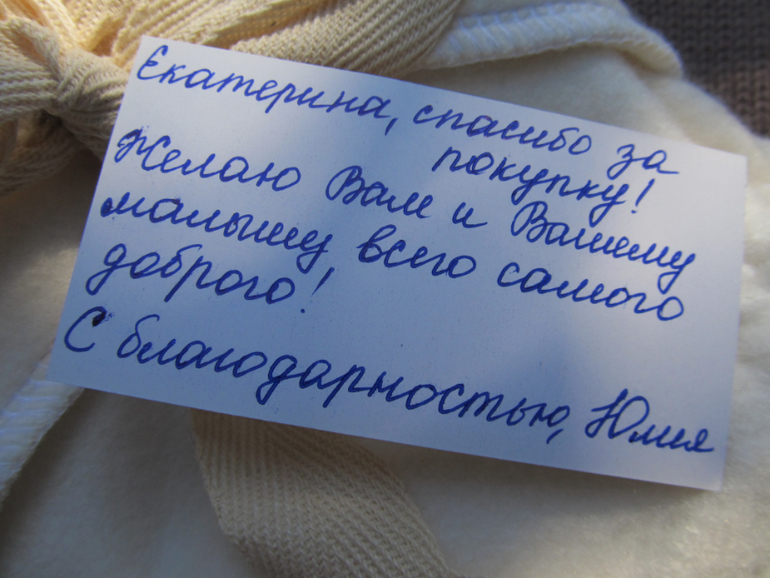 Екатерина, спасибо за
покупку!
Желаю Вам и Вашему
малышу всего самого
доброго!
С благодарностью, Юлия